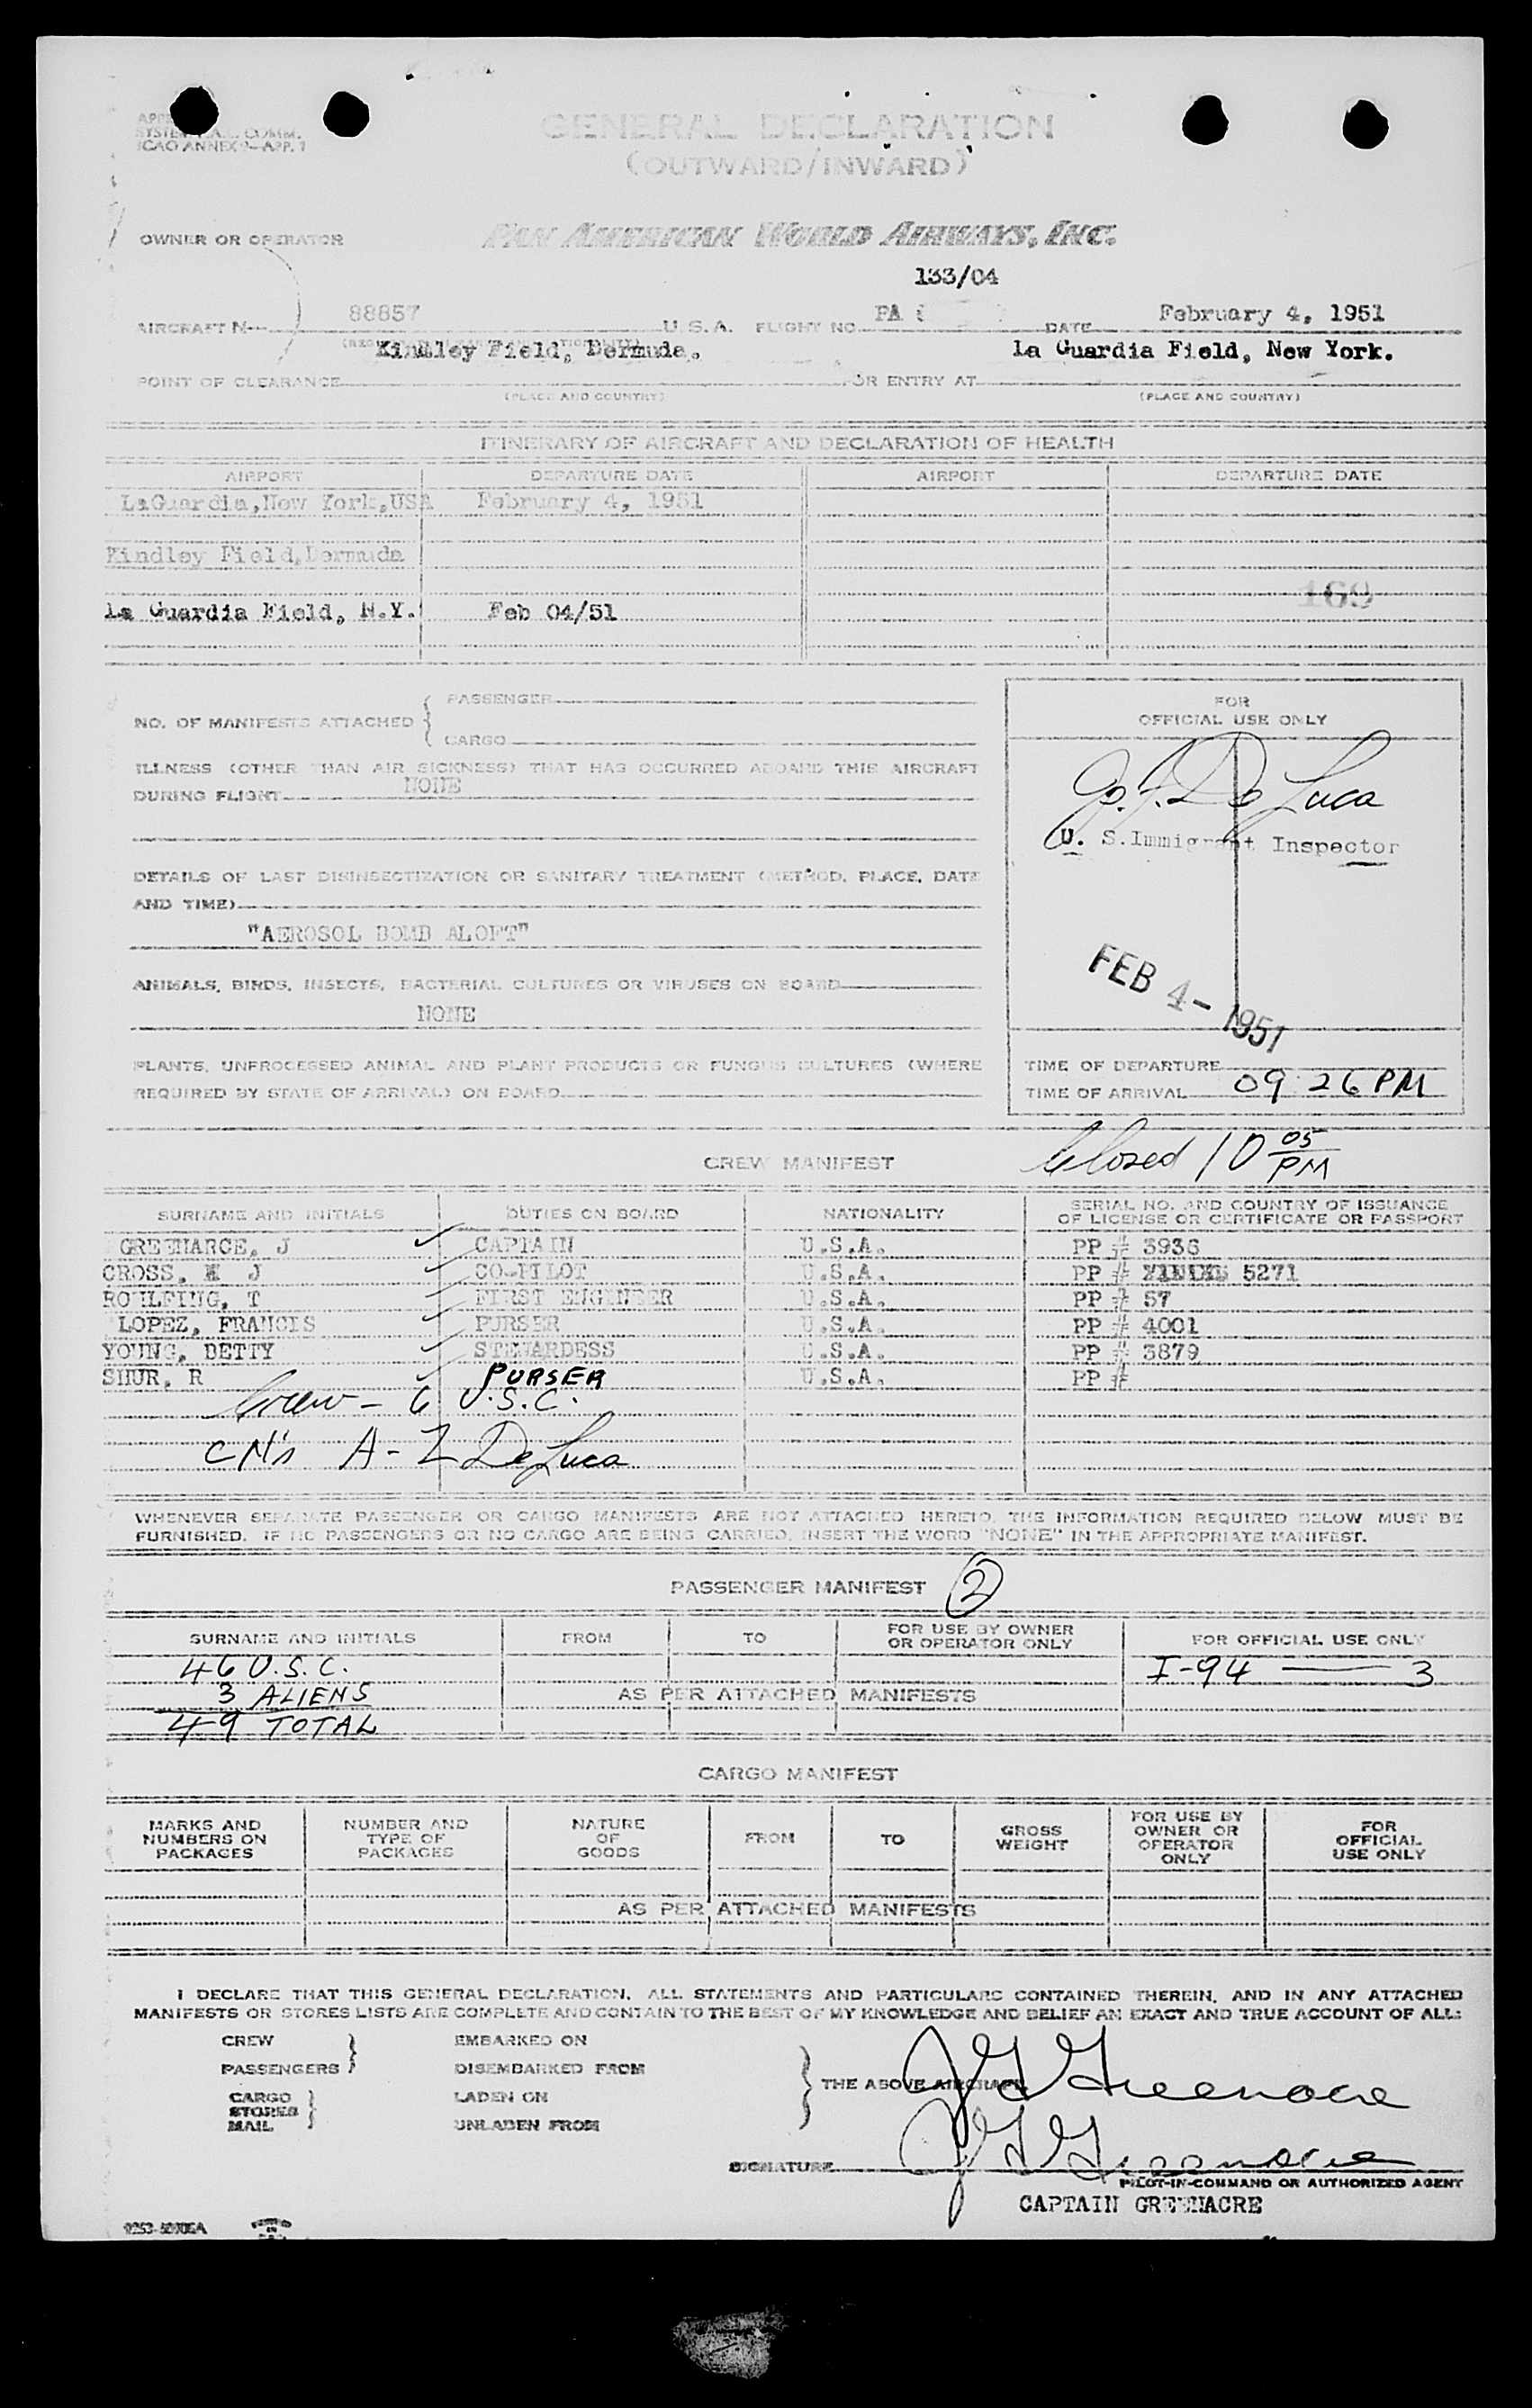 GENERAL DECLARATION
(OUTWARD/INWARD)
ICAO ANNEX 9—APP. 1
OWNER OR OPERATOR PAN AMERICAN WORLD AIRWAYS, INC.
133/04
AIRCRAFT N— 88857 U. S. A. FLIGHT NO. PA DATE February 4, 1951
Kindley Field, Bermuda. La Guardia Field, New York.
POINT OF CLEARANCE FOR ENTRY AT
(PLACE AND COUNTRY) (PLACE AND COUNTRY)
ITINERARY OF AIRCRAFT AND DECLARATION OF HEALTH
AIRPORT DEPARTURE DATE AIRPORT DEPARTURE DATE
LaGuardia,New York,USA February 4, 1951
Kindley Field,Bermuda
169
La Guardia Field, N.Y. Feb 04/51
NO. OF MANIFESTS ATTACHED { PASSENGER
CARGO
FOR
OFFICIAL USE ONLY
ILLNESS (OTHER THAN AIR SICKNESS) THAT HAS OCCURRED ABOARD THIS AIRCRAFT
DURING FLIGHT NONE
De Luca
U. S.Immigrant Inspector
DETAILS OF LAST DISINSECTIZATION OR SANITARY TREATMENT (METHOD, PLACE, DATE
AND TIME)
"AEROSOL BOMB ALOFT"
FEB 4 - 1951
ANIMALS, BIRDS, INSECTS, BACTERIAL CULTURES OR VIRUSES ON BOARD
NONE
PLANTS, UNPROCESSED ANIMAL AND PLANT PRODUCTS OR FUNGUS CULTURES (WHERE
REQUIRED BY STATE OF ARRIVAL) ON BOARD
TIME OF DEPARTURE
TIME OF ARRIVAL 09:26 PM
Closed 10 05 PM
CREW MANIFEST
SURNAME AND INITIALS DUTIES ON BOARD NATIONALITY SERIAL NO. AND COUNTRY OF ISSUANCE
OF LICENSE OR CERTIFICATE OR PASSPORT
GREENARCE, J ✓ CAPTAIN U.S.A. PP # 3936
CROSS, J ✓ CO-PILOT U.S.A. PP # 5271
ROHLFING, T ✓ FIRST ENGINEER U.S.A. PP # 57
LOPEZ, FRANCIS ✓ PURSER U.S.A. PP # 4001
YOUNG, BETTY ✓ STEWARDESS U.S.A. PP # 3879
SHUR, R ✓ PURSER U.S.A. PP #
Crew - 6 U.S.C.
CM's A - Z De Luca
WHENEVER SEPARATE PASSENGER OR CARGO MANIFESTS ARE NOT ATTACHED HERETO, THE INFORMATION REQUIRED BELOW MUST BE
FURNISHED. IF NO PASSENGERS OR NO CARGO ARE BEING CARRIED, INSERT THE WORD "NONE" IN THE APPROPRIATE MANIFEST.
PASSENGER MANIFEST 2
SURNAME AND INITIALS FROM TO FOR USE BY OWNER
OR OPERATOR ONLY FOR OFFICIAL USE ONLY
46 U.S.C. I-94 — 3
3 ALIENS AS PER ATTACHED MANIFESTS
49 TOTAL
CARGO MANIFEST
MARKS AND
NUMBERS ON
PACKAGES
NUMBER AND
TYPE OF
PACKAGES
NATURE
OF
GOODS
FROM
TO
GROSS
WEIGHT
FOR USE BY
OWNER OR
OPERATOR
ONLY
FOR
OFFICIAL
USE ONLY
AS PER ATTACHED MANIFESTS
I DECLARE THAT THIS GENERAL DECLARATION, ALL STATEMENTS AND PARTICULARS CONTAINED THEREIN, AND IN ANY ATTACHED
MANIFESTS OR STORES LISTS ARE COMPLETE AND CONTAIN TO THE BEST OF MY KNOWLEDGE AND BELIEF AN EXACT AND TRUE ACCOUNT OF ALL:
CREW EMBARKED ON
PASSENGERS } DISEMBARKED FROM
CARGO LADEN ON
STORES }
MAIL UNLADEN FROM
} THE ABOVE AIRCRAFT
J G Greenacre
SIGNATURE J G Greenacre
PILOT-IN-COMMAND OR AUTHORIZED AGENT
CAPTAIN GREENACRE